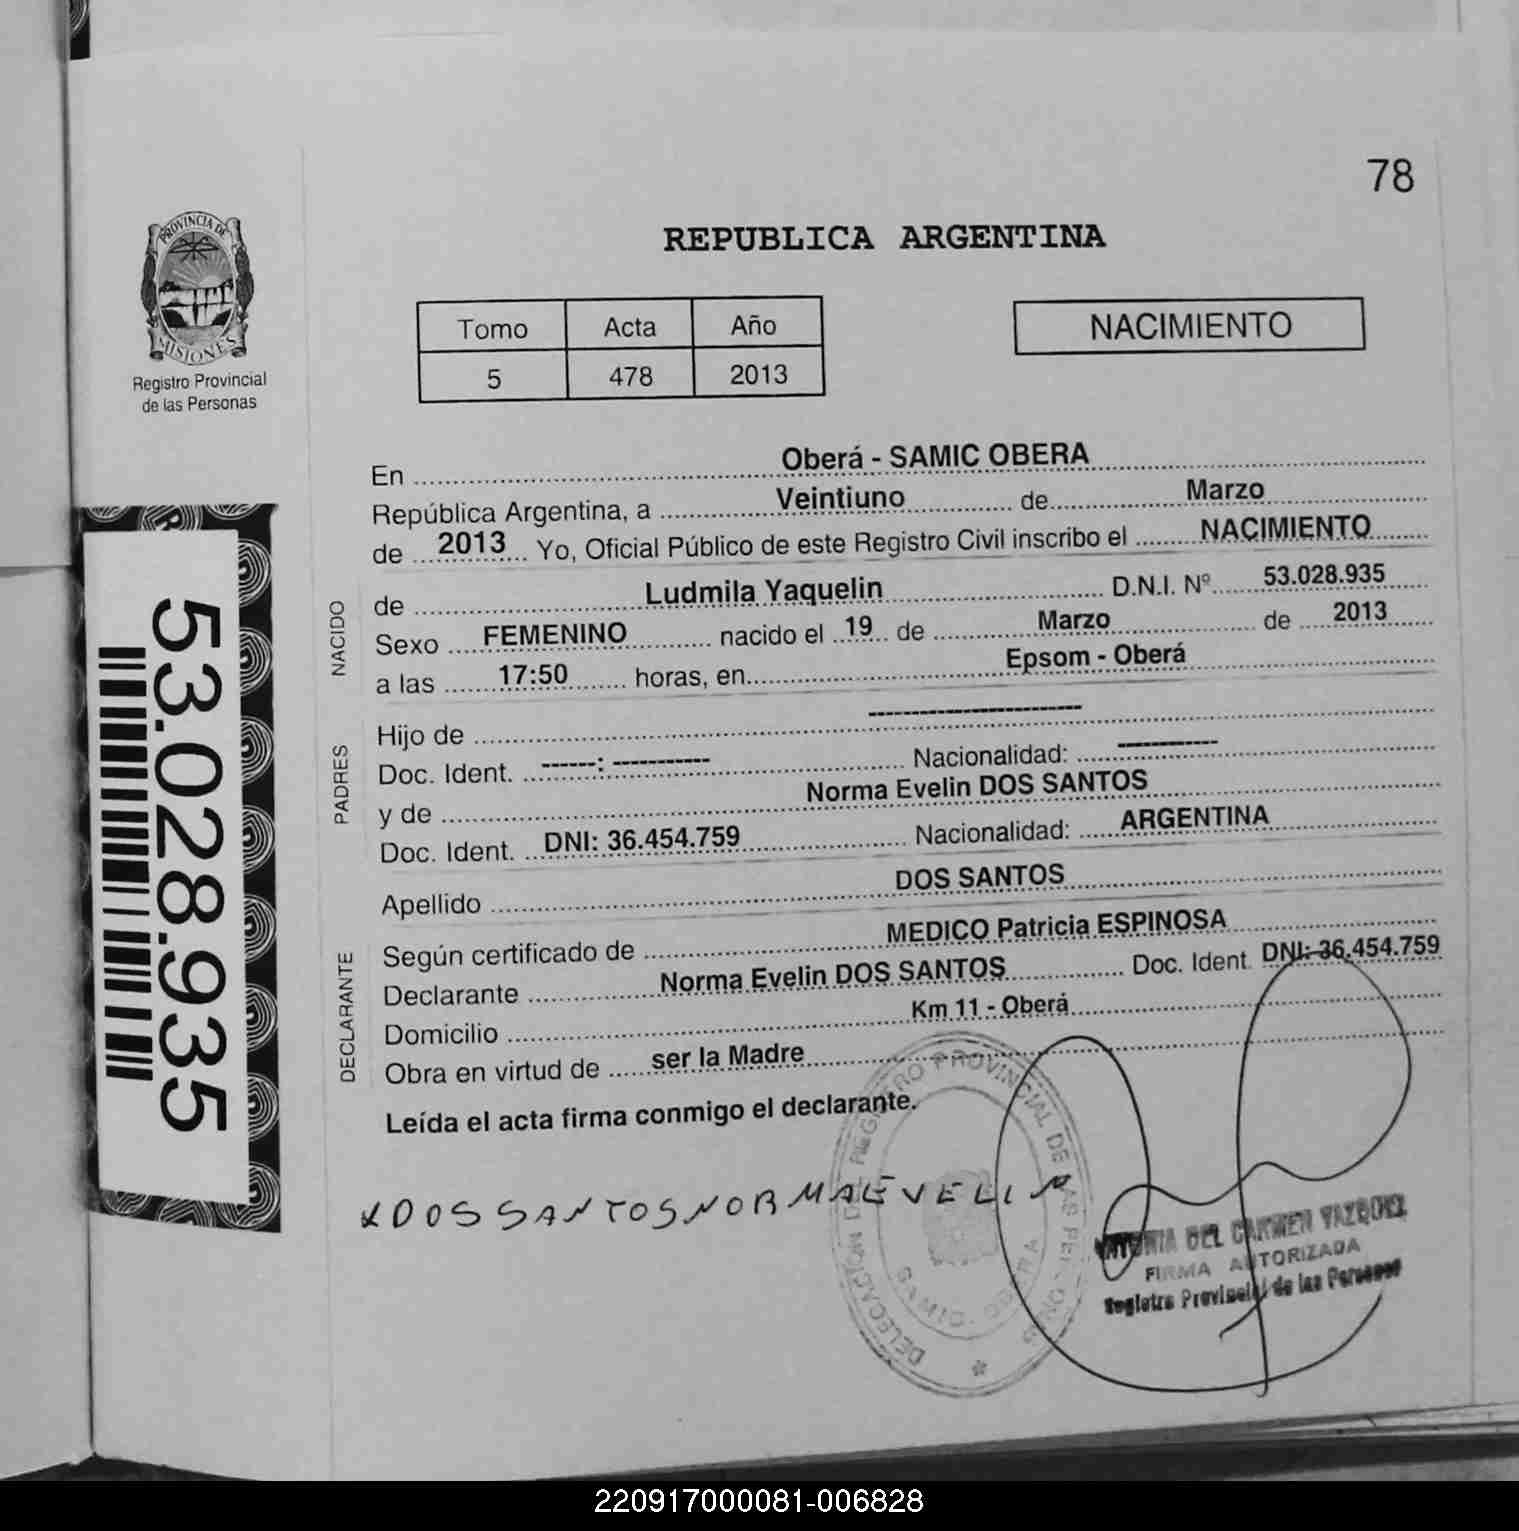 78
PROVINCIA DE
MISIONES
Registro Provincial
de las Personas
REPUBLICA ARGENTINA
Tomo Acta Año
5 478 2013
NACIMIENTO
En Oberá - SAMIC OBERA
República Argentina, a Veintiuno de Marzo
de 2013 Yo, Oficial Público de este Registro Civil inscribo el NACIMIENTO
NACIDO
de Ludmila Yaquelin D.N.I. Nº 53.028.935
Sexo FEMENINO nacido el 19 de Marzo de 2013
a las 17:50 horas, en Epsom - Oberá
PADRES
Hijo de ------------------------
Doc. Ident. ------: ----------- Nacionalidad: ------------
y de Norma Evelin DOS SANTOS
Doc. Ident. DNI: 36.454.759 Nacionalidad: ARGENTINA
Apellido DOS SANTOS
DECLARANTE
Según certificado de MEDICO Patricia ESPINOSA
Declarante Norma Evelin DOS SANTOS Doc. Ident. DNI: 36.454.759
Domicilio Km 11 - Oberá
Obra en virtud de ser la Madre
Leída el acta firma conmigo el declarante.
53.028.935
x DOS SANTOS NORMA EVELIN
DELEGACION DEL REGISTRO PROVINCIAL DE LAS PERSONAS
SAMIC - OBERA
DEL CARMEN VAZQUEZ
FIRMA AUTORIZADA
Registro Provincial de las Personas
220917000081-006828